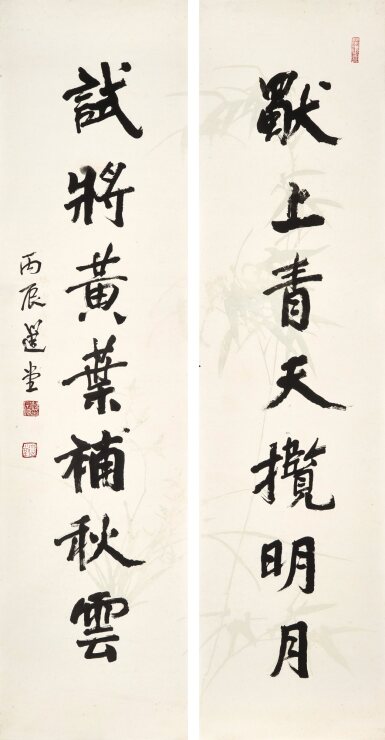 上青天攬明月
試將黃葉補秋雲
丙辰選堂